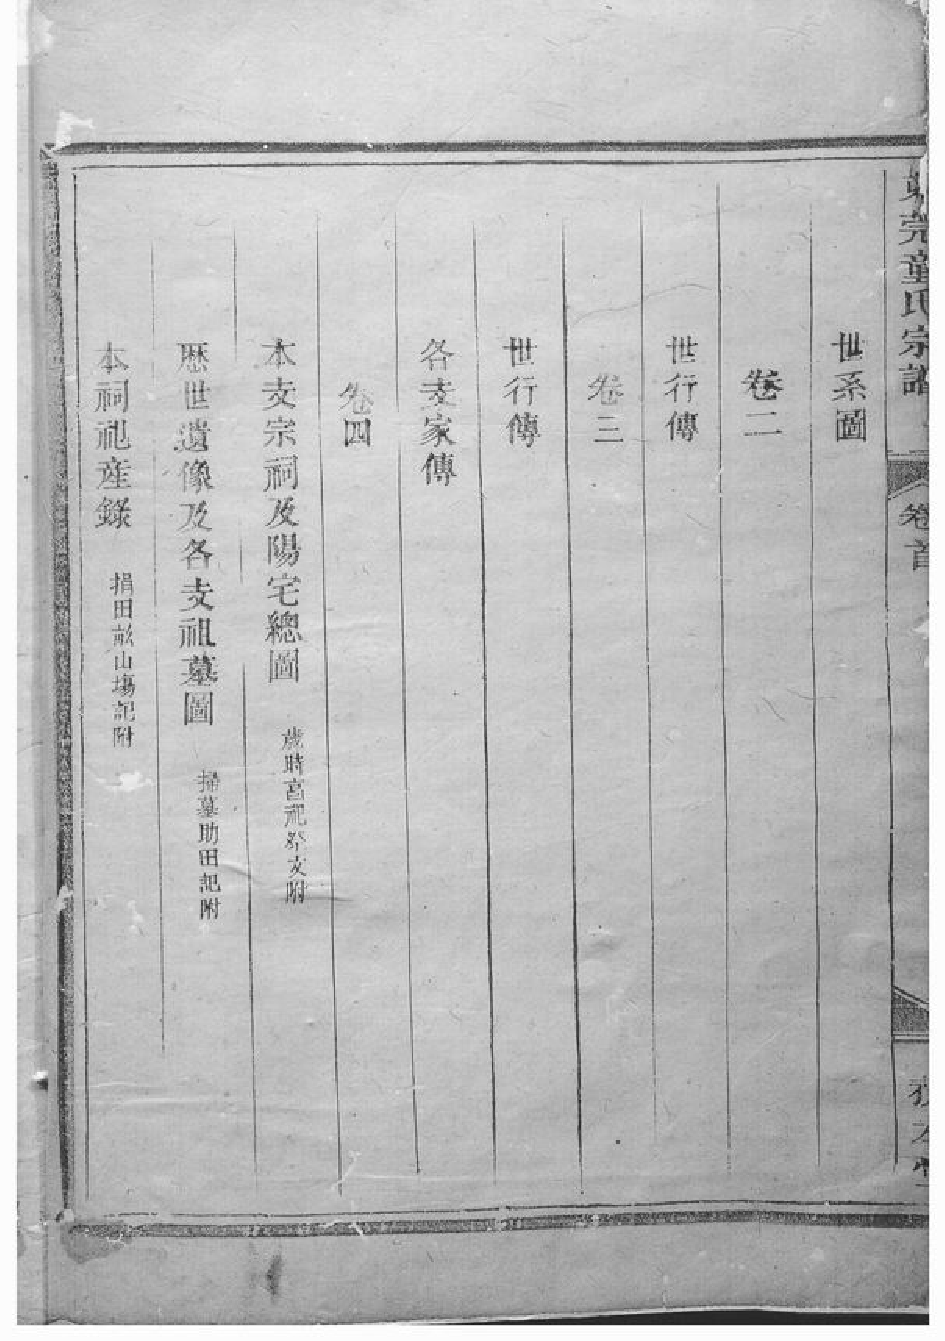 童氏宗譜
卷首
世系圖
卷二
世行傳
卷三
世行傳
各支家傳
卷四
本支宗祠及陽宅總圖 歲時宮祀祭文附
歷世遺像及各支祖墓圖 掃墓助田記附
本祠祀產錄 捐田畝山塲記附